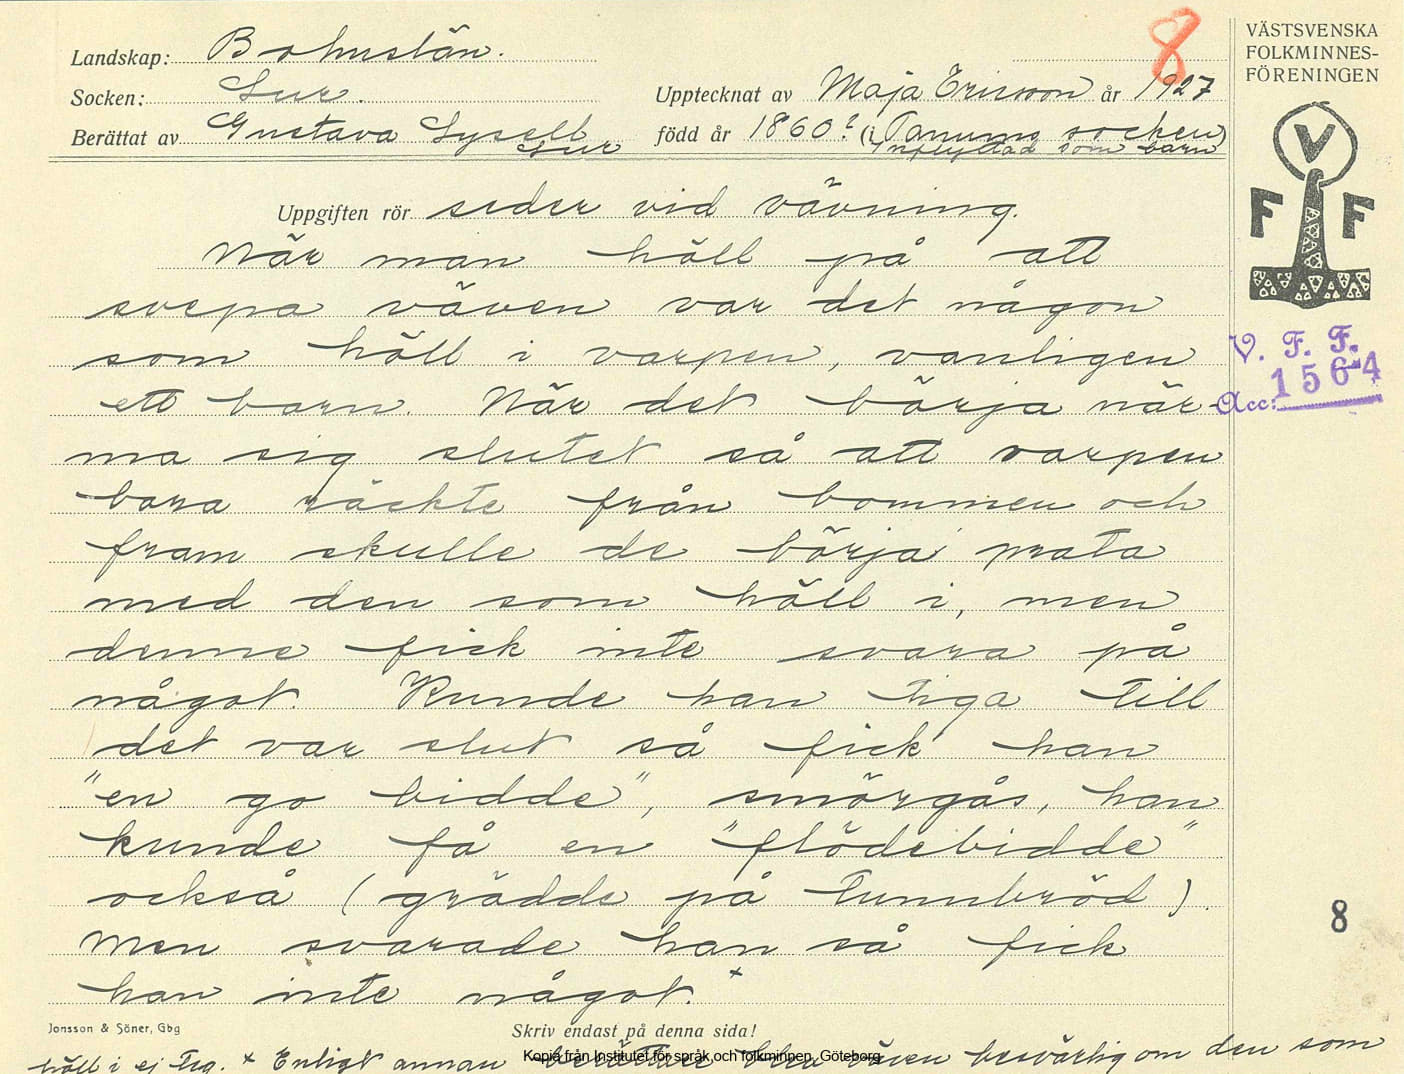 8
VÄSTSVENSKA
FOLKMINNES-
FÖRENINGEN
Landskap: Bohuslän.
Socken: Sur.
Upptecknat av Maja Ericsson år 1927
Berättat av Gustava Lysell Sur född år 1860? (i Tanums socken)
Inflyttad som barn
V
F F
Uppgiften rör seder vid vävning.
När man höll på att
svepa väven var det någon
som höll i varpen, vanligen
ett barn. När det börja när-
ma sig slutet så att varpen
bara räckte från bommen och
fram skulle de börja prata
med den som höll i, men
denne fick inte svara på
något. Kunde han tiga till
det var slut så fick han
"en go bidde", smörgås, han
kunde få en "flödebidde"
också (grädde på tunnbröd).
Men svarade han så fick
han inte något.x
V. F. F.
Acc: 1564
8
Jonsson & Söner, Gbg
Skriv endast på denna sida!
Kopia från Institutet för språk och folkminnen, Göteborg
x Enligt annan berättare blev väven besvärlig om den som
höll i ej teg.